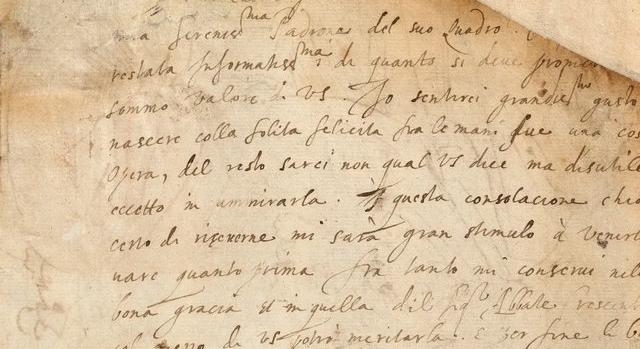 mia Sereniss^ma Padrona del suo Quadro.
restata Informatiss^ma di quanto si deve promett
sommo valore di VS. Io sentirei grandiss^mo gusto
nascere colla solita felicita fra le mani sue una cosi
Opera, del resto sarei non qual VS dice ma disutile
eccetto in ammirarla. questa consolacione
certo di riceverne mi sarà gran stimulo à venirla
vare quanto prima fra tanto mi conservi nella
bona gracia et in quella dil Sig^r Abbate
di VS potrò meritarla. E per fine le b